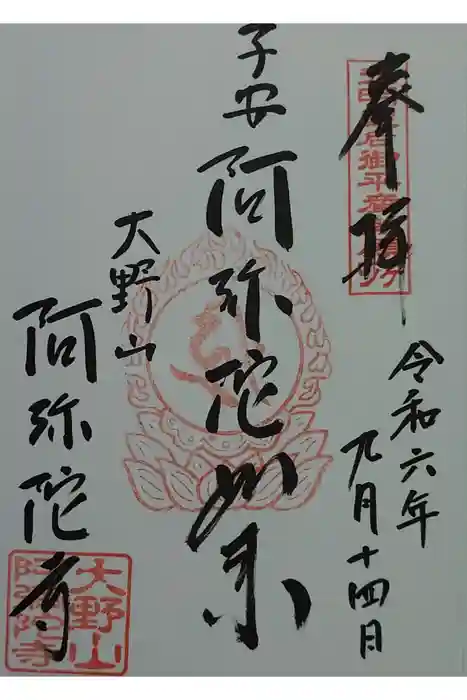 奉拝
令和六年
九月十四日
子安
阿弥陀如来
大野山
阿弥陀寺
大野山
阿弥陀寺